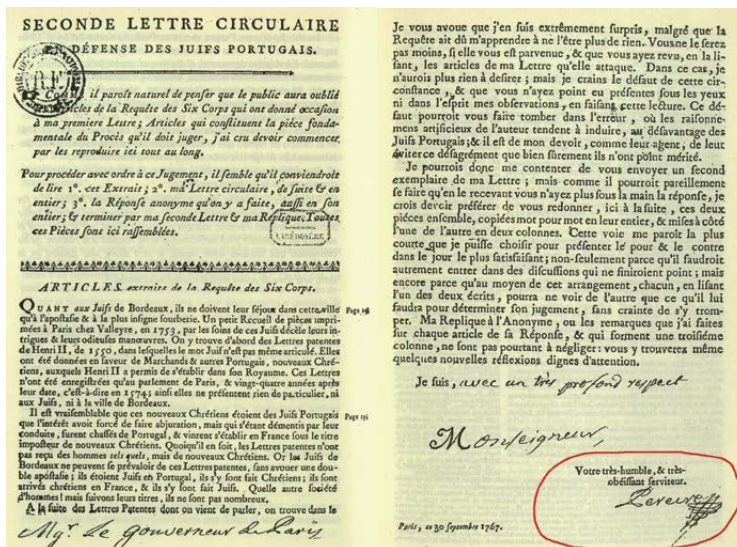 SECONDE LETTRE CIRCULAIRE
EN DÉFENSE DES JUIFS PORTUGAIS.
il paroît naturel de penser que le public aura oublié
Articles de la Requête des Six Corps qui ont donné occasion
à ma premiere Lettre; Articles qui constituent la piéce fonda-
mentale du Procès qu'il doit juger, j'ai cru devoir commencer
par les reproduire ici tout au long.
Pour procéder avec ordre à ce Jugement, il semble qu'il conviendroit
de lire 1°. cet Extrait; 2°. ma Lettre circulaire, de suite & en
entier; 3°. la Réponse anonyme qu'on y a faite, aussi en son
entier; & terminer par ma seconde Lettre & ma Replique. Toutes
ces Piéces sont ici rassemblées.
ARTICLES extraits de la Requête des Six Corps.
QUANT aux Juifs de Bordeaux, ils ne doivent leur séjour dans cette ville
qu'à l'apostasie & à la plus insigne fourberie. Un petit Recueil de piéces impri-
mées à Paris chez Valleyre, en 1753, par les soins de ces Juifs décèle leurs in-
trigues & leurs odieuses manœuvres. On y trouve d'abord des Lettres patentes
de Henri II, de 1550, dans lesquelles le mot Juif n'est pas même articulé. Elles
ont été données en faveur de Marchands & autres Portugais, nouveaux Chré-
tiens, auxquels Henri II a permis de s'établir dans son Royaume. Ces Lettres
n'ont été enregistrées qu'au parlement de Paris, & vingt-quatre années après
leur date, c'est-à-dire en 1574; ainsi elles ne présentent rien de particulier, ni
aux Juifs, ni à la ville de Bordeaux.
Il est vraisemblable que ces nouveaux Chrétiens étoient des Juifs Portugais
que l'intérêt avoit forcé de faire abjuration, mais qui s'étant démentis par leur
conduite, furent chassés de Portugal, & vinrent s'établir en France sous le titre
imposteur de nouveaux Chrétiens. Quoiqu'il en soit, les Lettres patentes n'ont
pas reçu des hommes tels quels, mais de nouveaux Chrétiens. Or les Juifs de
Bordeaux ne peuvent se prévaloir de ces Lettres patentes, sans avouer une dou-
ble apostasie; ils étoient Juifs en Portugal, ils s'y sont fait Chrétiens; ils sont
arrivés chrétiens en France, & ils s'y sont fait Juifs. Quelle autre société
d'hommes! mais suivons leurs titres, ils ne sont pas nombreux.
A la suite des Lettres Patentes dont on vient de parler, on trouve dans le
Mgr. Le Gouverneur de Paris
Je vous avoue que j'en suis extrêmement surpris, malgré que la
Requête ait dû m'apprendre à ne l'être plus de rien. Vous ne le serez
pas moins, si elle vous est parvenue, & que vous ayez revu, en la li-
sant, les articles de ma Lettre qu'elle attaque. Dans ce cas, je
n'aurois plus rien à desirer; mais je crains le défaut de cette cir-
constance, & que vous n'ayez point eu présentes sous les yeux
ni dans l'esprit mes observations, en faisant cette lecture. Ce dé-
faut pourroit vous faire tomber dans l'erreur, où les raisonne-
mens artificieux de l'auteur tendent à induire, au désavantage des
Juifs Portugais; & il est de mon devoir, comme leur agent, de leur
éviter ce désagrément que bien sûrement ils n'ont point mérité.
Je pourrois donc me contenter de vous envoyer un second
exemplaire de ma Lettre; mais comme il pourroit pareillement
se faire qu'en le recevant vous n'ayez plus sous la main la réponse, je
crois devoir préférer de vous redonner, ici à la suite, ces deux
piéces ensemble, copiées mot pour mot en leur entier, & mises à côté
l'une de l'autre en deux colonnes. Cette voie me paroît la plus
courte que je puisse choisir pour présenter le pour & le contre
dans le jour le plus satisfaisant; non-seulement parce qu'il faudroit
autrement entrer dans des discussions qui ne finiroient point; mais
encore parce qu'au moyen de cet arrangement, chacun, en lisant
l'un des deux écrits, pourra ne voir de l'autre que ce qu'il lui
faudra pour déterminer son jugement, sans crainte de s'y trom-
per. Ma Replique à l'Anonyme, ou les remarques que j'ai faites
sur chaque article de sa Réponse, & qui forment une troisiéme
colonne, ne sont pas pourtant à négliger: vous y trouverez même
quelques nouvelles réflexions dignes d'attention.
Je suis, avec un très profond respect
Monseigneur,
Votre très-humble, & très-
obéissant serviteur.
Pereire
Paris, ce 30 Septembre 1767.